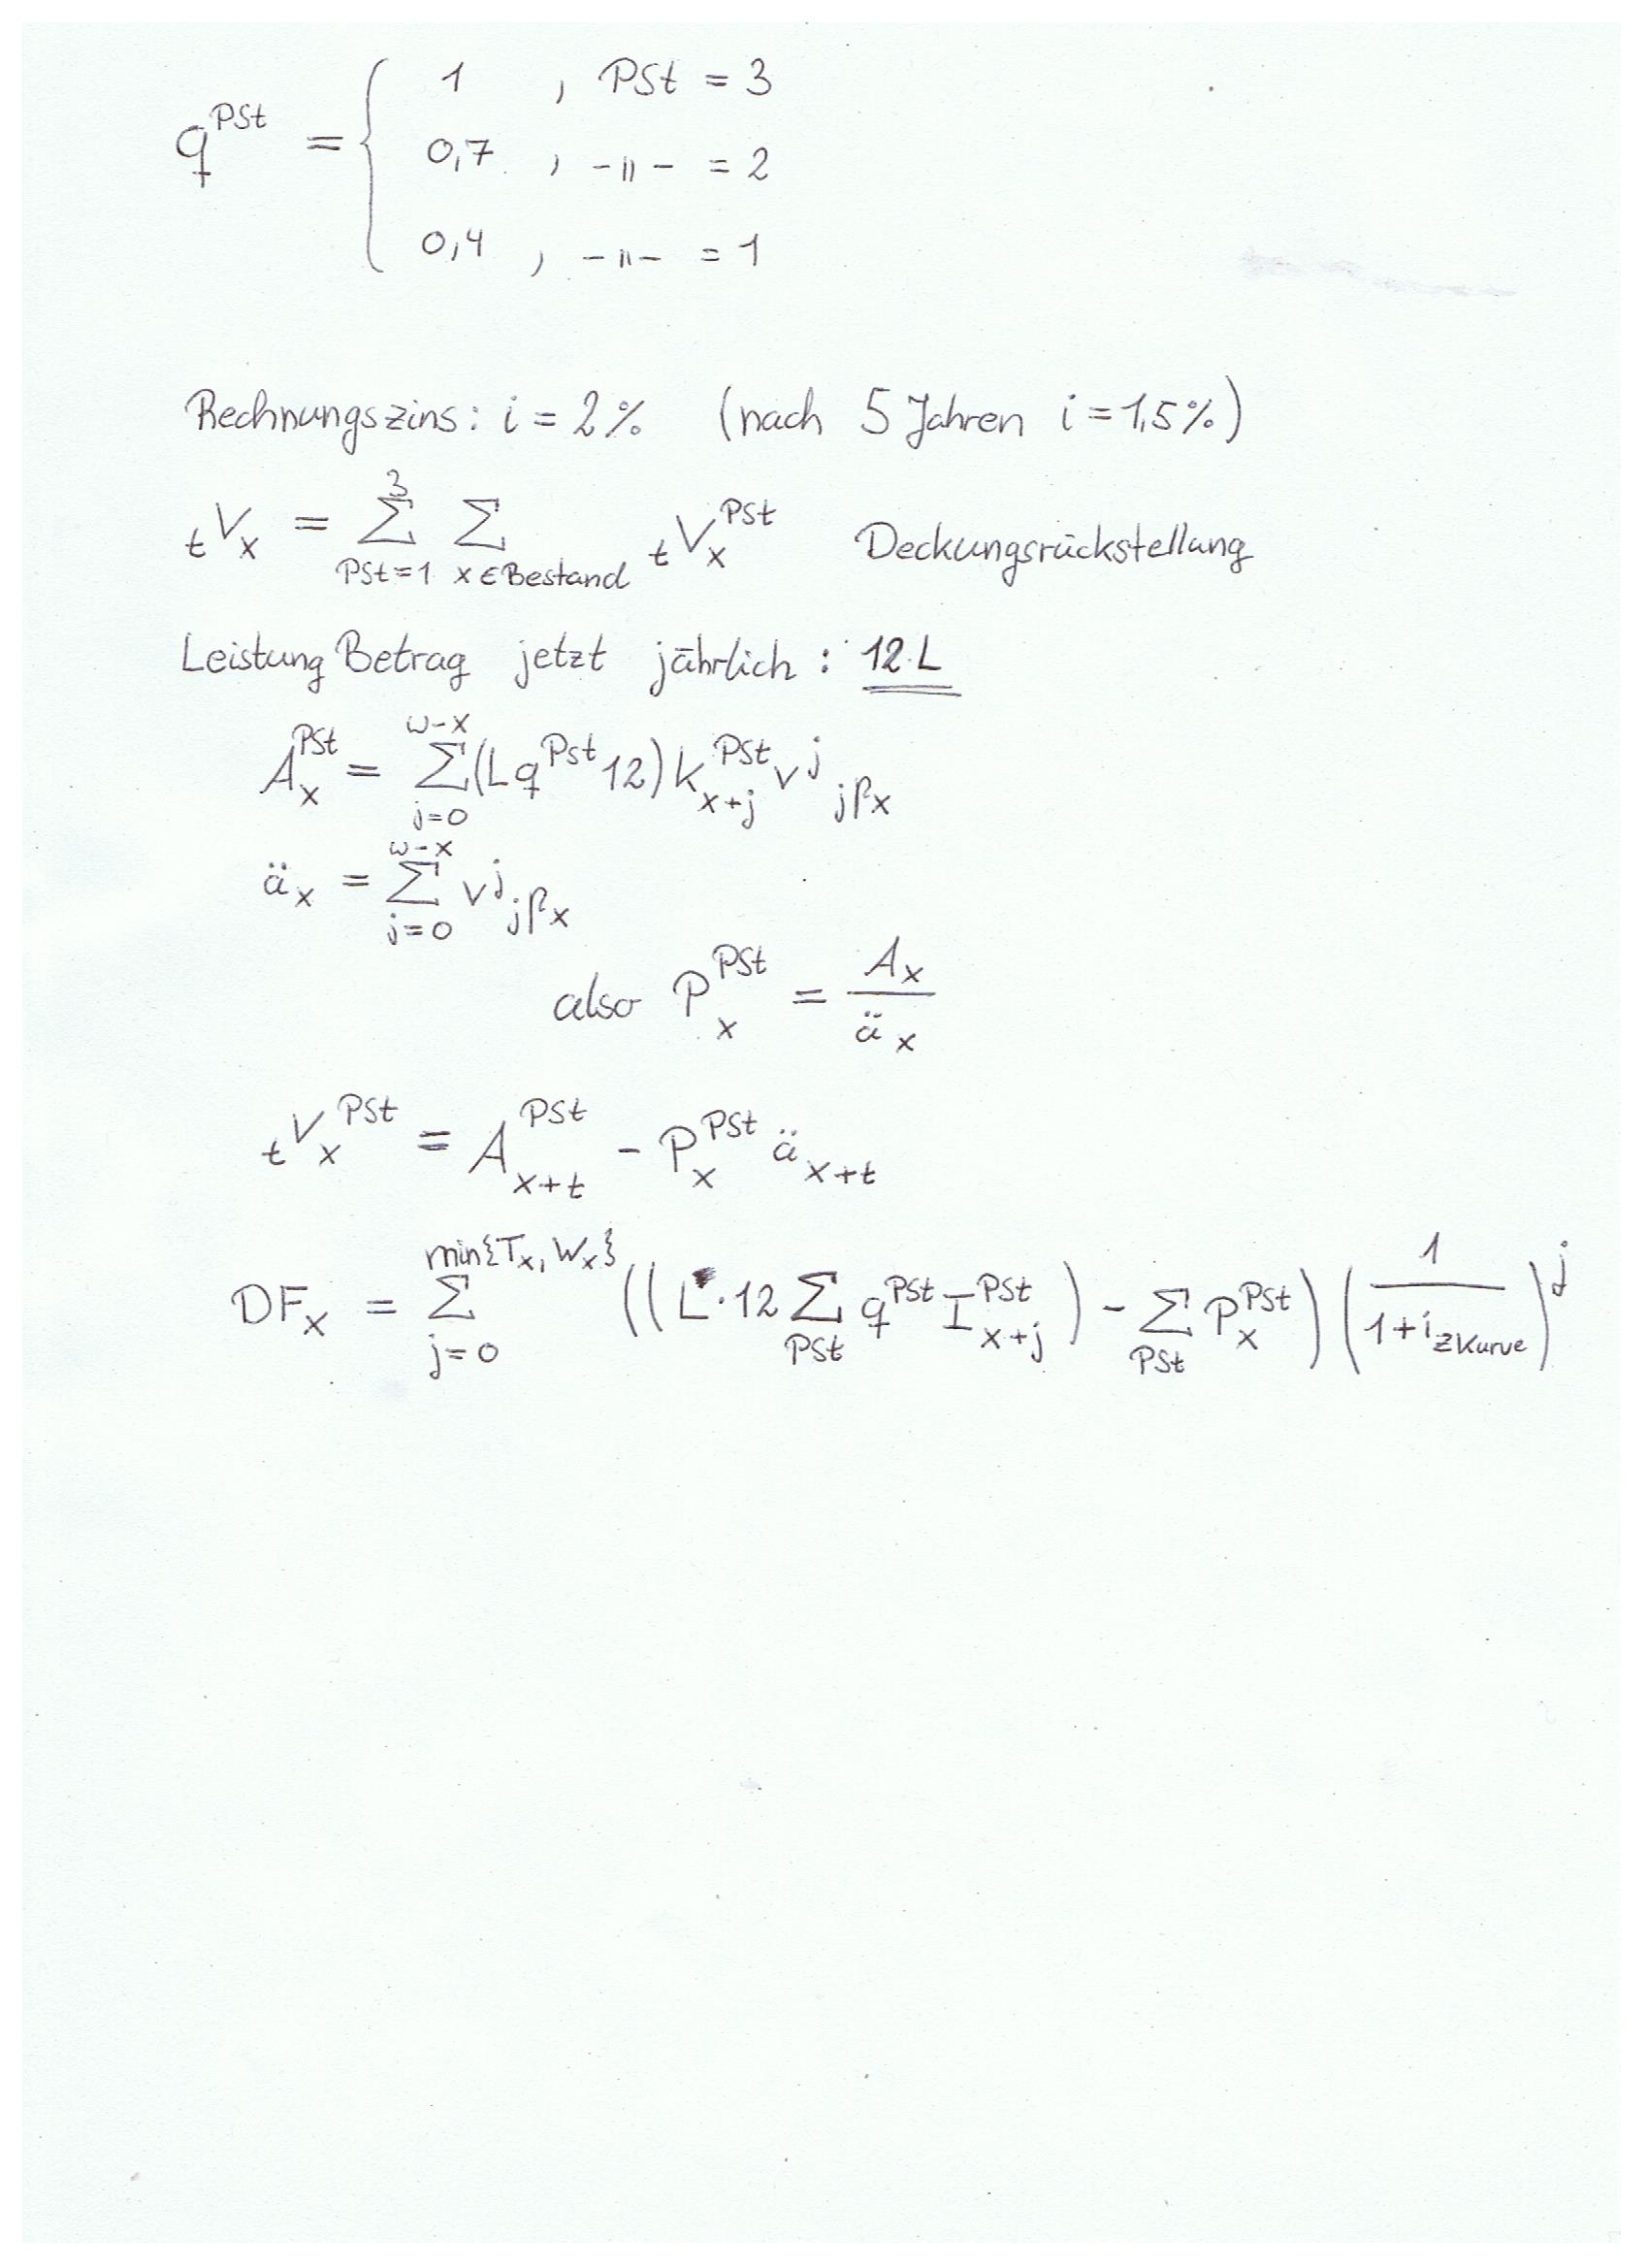 q^PSt = { 1 , PSt = 3
0,7 , -"- = 2
0,4 , -"- = 1
Rechnungszins: i = 2% (nach 5 Jahren i = 1,5%)
ₜVₓ = ∑_{PSt=1}^{3} ∑_{x∈Bestand} ₜVₓ^PSt Deckungsrückstellung
Leistung Betrag jetzt jährlich : 12·L
Aₓ^PSt = ∑_{j=0}^{ω-x} (L q^PSt 12) k_{x+j}^PSt v^j ⱼpₓ
äₓ = ∑_{j=0}^{ω-x} v^j ⱼpₓ
also Pₓ^PSt = Aₓ / äₓ
ₜVₓ^PSt = A_{x+t}^PSt - Pₓ^PSt ä_{x+t}
DFₓ = ∑_{j=0}^{min{Tₓ, Wₓ}} ((L·12 ∑_{PSt} q^PSt I_{x+j}^PSt) - ∑_{PSt} Pₓ^PSt) (1 / (1+i_{zKurve}))^j